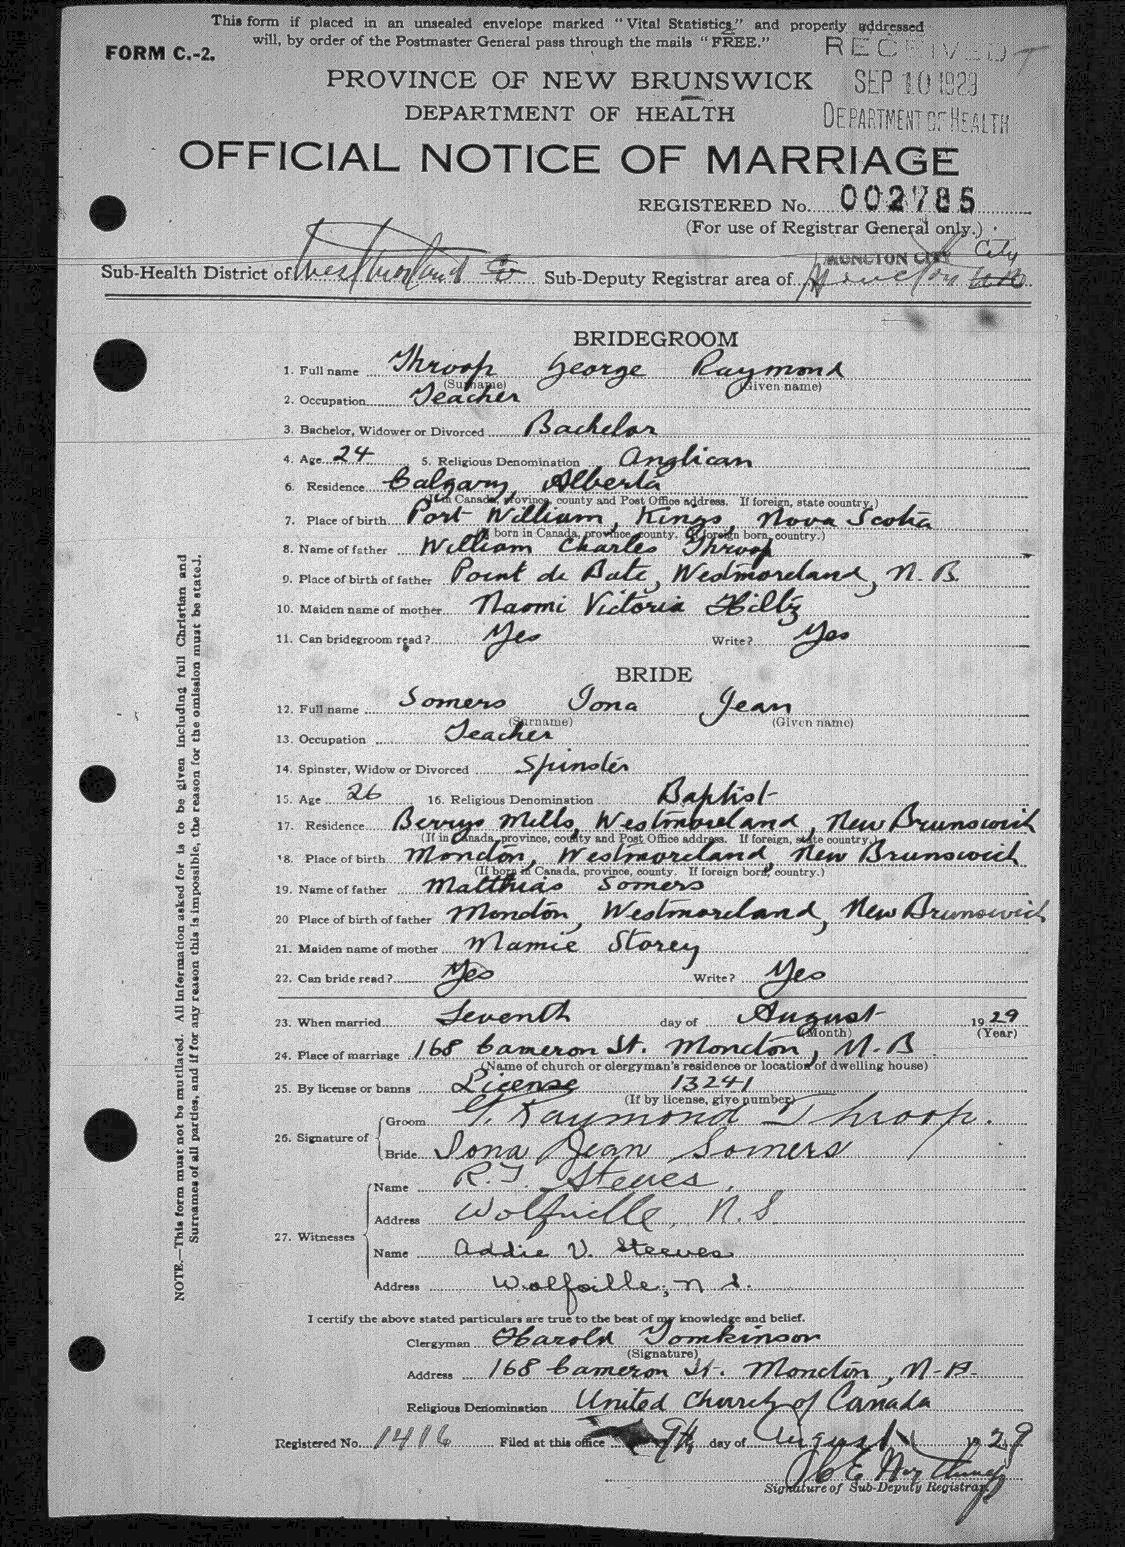 This form if placed in an unsealed envelope marked "Vital Statistics" and properly addressed
will, by order of the Postmaster General pass through the mails "FREE."
FORM C.-2.
RECEIVED
SEP 10 1929
DEPARTMENT OF HEALTH
PROVINCE OF NEW BRUNSWICK
DEPARTMENT OF HEALTH
OFFICIAL NOTICE OF MARRIAGE
REGISTERED No. 002785
(For use of Registrar General only.)
MONCTON CITY City
Sub-Health District of Westmorland Co Sub-Deputy Registrar area of Moncton
BRIDEGROOM
1. Full name Throop George Raymond
(Surname) (Given name)
2. Occupation Teacher
3. Bachelor, Widower or Divorced Bachelor
4. Age 24 5. Religious Denomination Anglican
6. Residence Calgary, Alberta
(If in Canada, province, county and Post Office address. If foreign, state country.)
7. Place of birth Port William, Kings, Nova Scotia
(If born in Canada, province, county. If foreign born, country.)
8. Name of father William Charles Throop
9. Place of birth of father Point de Bute, Westmoreland, N. B.
10. Maiden name of mother Naomi Victoria Hiltz
11. Can bridegroom read? Yes Write? Yes
BRIDE
12. Full name Somers Iona Jean
(Surname) (Given name)
13. Occupation Teacher
14. Spinster, Widow or Divorced Spinster
15. Age 26 16. Religious Denomination Baptist
17. Residence Berrys Mills, Westmoreland, New Brunswick
(If in Canada, province, county and Post Office address. If foreign, state country.)
18. Place of birth Moncton, Westmoreland, New Brunswick
(If born in Canada, province, county. If foreign born, country.)
19. Name of father Matthias Somers
20 Place of birth of father Moncton, Westmoreland, New Brunswick
21. Maiden name of mother Mamie Storey
22. Can bride read? Yes Write? Yes
23. When married Seventh day of August 1929
(Month) (Year)
24. Place of marriage 168 Cameron St. Moncton, N.B.
(Name of church or clergyman's residence or location of dwelling house)
25. By license or banns License 13241
(If by license, give number)
26. Signature of
Groom G. Raymond Throop.
Bride Iona Jean Somers
27. Witnesses
Name R.J. Steeves,
Address Wolfville, N.S.
Name Addie V. Steeves
Address Wolfville, N. S.
I certify the above stated particulars are true to the best of my knowledge and belief.
Clergyman Harold Tomkinson
(Signature)
Address 168 Cameron St. Moncton, N-B-
Religious Denomination United Church of Canada
Registered No. 1416 Filed at this office 9th day of August 1929
Signature of Sub-Deputy Registrar
NOTE.—This form must not be mutilated. All information asked for is to be given including full Christian and
Surnames of all parties, and if for any reason this is impossible, the reason for the omission must be stated.